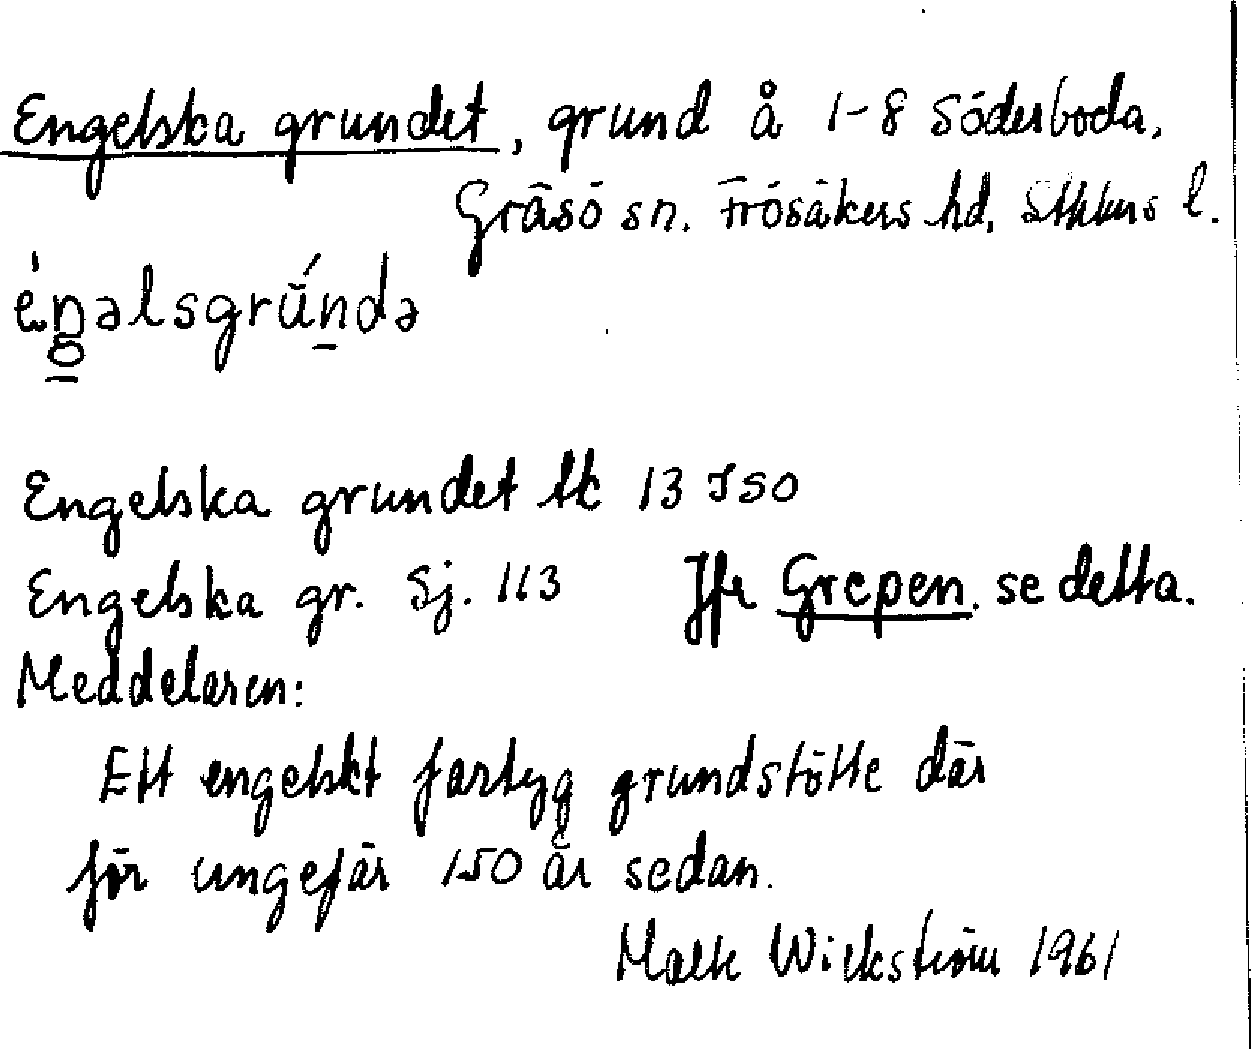 Engelska grundet, grund å 1-8 Söderboda,
Gräsö sn. Frösåkers hd, Sthlms l.
éŋəlsgrŭ́ndə
Engelska grundet Ek 13 I SO
Engelska gr. Sj. 113 Jfr Grepen. se detta.
Meddelaren:
Ett engelskt fartyg grundstötte där
för ungefär 150 år sedan.
Malte Wickström 1961